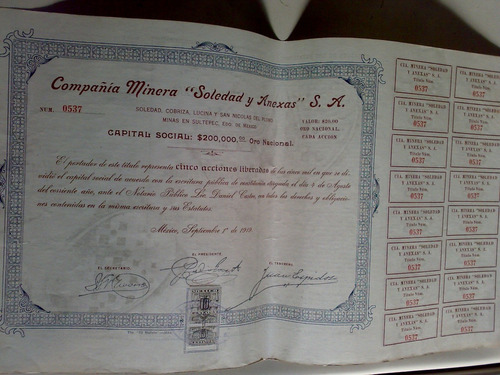 Compañía Minera "Soledad y Anexas" S. A.
NUM. 0537
SOLEDAD, COBRIZA, LUCINA Y SAN NICOLAS DEL
MINAS EN SULTEPEC, EDO. DE MEXICO
VALOR: $20.00
ORO NACIONAL
CADA ACCION
CAPITAL SOCIAL: $200,000.00 Oro Nacional.
El portador de este título representa cinco acciones liberadas de las en que se di-
vidió el capital social de acuerdo con la escritura pública de otorgada el día 4 de Agosto
del corriente año, ante el Notario Público Lic. Daniel todos los derechos y obligacio-
nes contenidas en la misma escritura y sus Estatutos.
México, Septiembre 1º de
EL SECRETARIO
EL PRESIDENTE
EL TESORERO
CIA. MINERA "SOLEDAD
Y ANEXAS" S. A.
Título Núm.
0537
CIA. MINERA "SOLEDAD
Y ANEXAS" S. A.
Título Núm.
0537
CIA. MINERA "SOLEDAD
Y ANEXAS" S. A.
Título Núm.
0537
CIA. MINERA "SOLEDAD
Y ANEXAS" S. A.
Título Núm.
0537
CIA. MINERA "SOLEDAD
Y ANEXAS" S. A.
Título Núm.
0537
CIA. MINERA "SOLEDAD
Y ANEXAS" S. A.
Título Núm.
0537
CIA. MINERA "SOLEDAD
Y ANEXAS" S. A.
Título Núm.
0537
CIA. MINERA "SOLEDAD
Y ANEXAS" S. A.
Título Núm.
0537
CIA. MINERA "SOLEDAD
Y ANEXAS" S. A.
Título Núm.
0537
CIA. MINERA "SOLEDAD
Y ANEXAS" S. A.
Título Núm.
0537
CIA. MINERA "SOLEDAD
Y ANEXAS" S. A.
Título Núm.
0537
CIA. MINERA "SOLEDAD
Y ANEXAS" S. A.
Título Núm.
0537
CIA. MINERA "SOLEDAD
Y ANEXAS" S. A.
Título Núm.
0537
CIA. MINERA "SOLEDAD
Y ANEXAS" S. A.
Título Núm.
0537
CIA. MINERA "SOLEDAD
Y ANEXAS" S. A.
Título Núm.
0537
CIA. MINERA "SOLEDAD
Y ANEXAS" S. A.
Título Núm.
0537